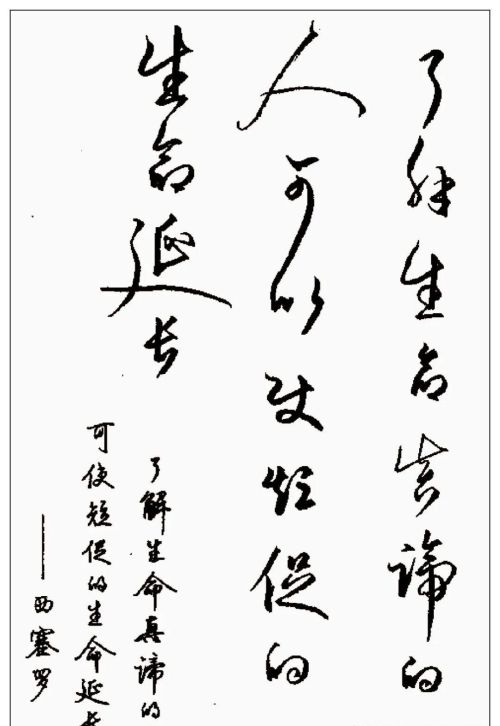 了解生命真谛的
人可以使短促的
生命延长
了解生命真谛的
可使短促的生命延长
——西塞罗